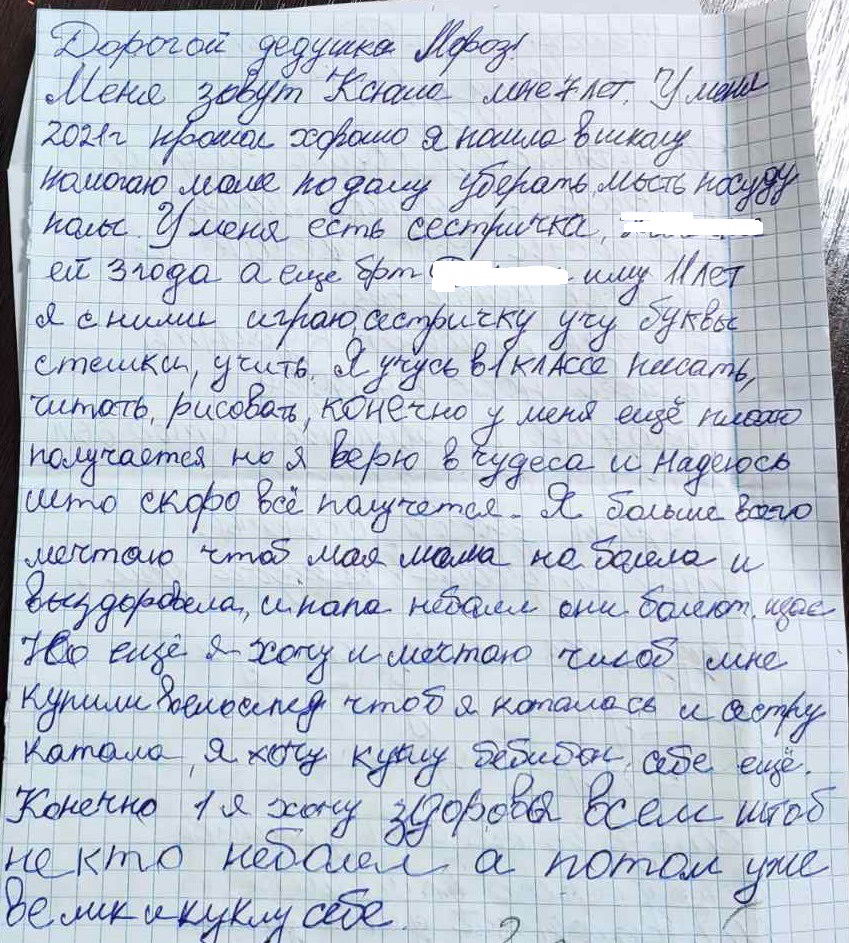 Дорогой дедушка Мороз!
Меня зовут Ксюша мне 7 лет. У меня
2021г прошол хорошо я пошла в школу
помогаю маме по даму уберать, мыть посуду
полы. У меня есть сестричка,
ей 3 года а еще брт иму 11 лет
я с ними играю, сестричку учу буквы
стешки, учить. Я учусь в 1 КЛАССе писать,
читать, рисовать, конечно у меня ещё плохо
получается но я верю в чудеса и надеюсь
што скоро всё палучется. Я больше всего
мечтаю чтоб мая мама не балела и
выздоровела, и папа небалел они балеют щас
Но ещё я хочу и мечтаю чтоб мне
купили велосипед чтоб я каталась и сестру
катала, я хочу куклу бебибон себе ещё.
Конечно 1 я хочу здоровья всем штоб
не кто небалел а потом уже
велик и куклу себе.